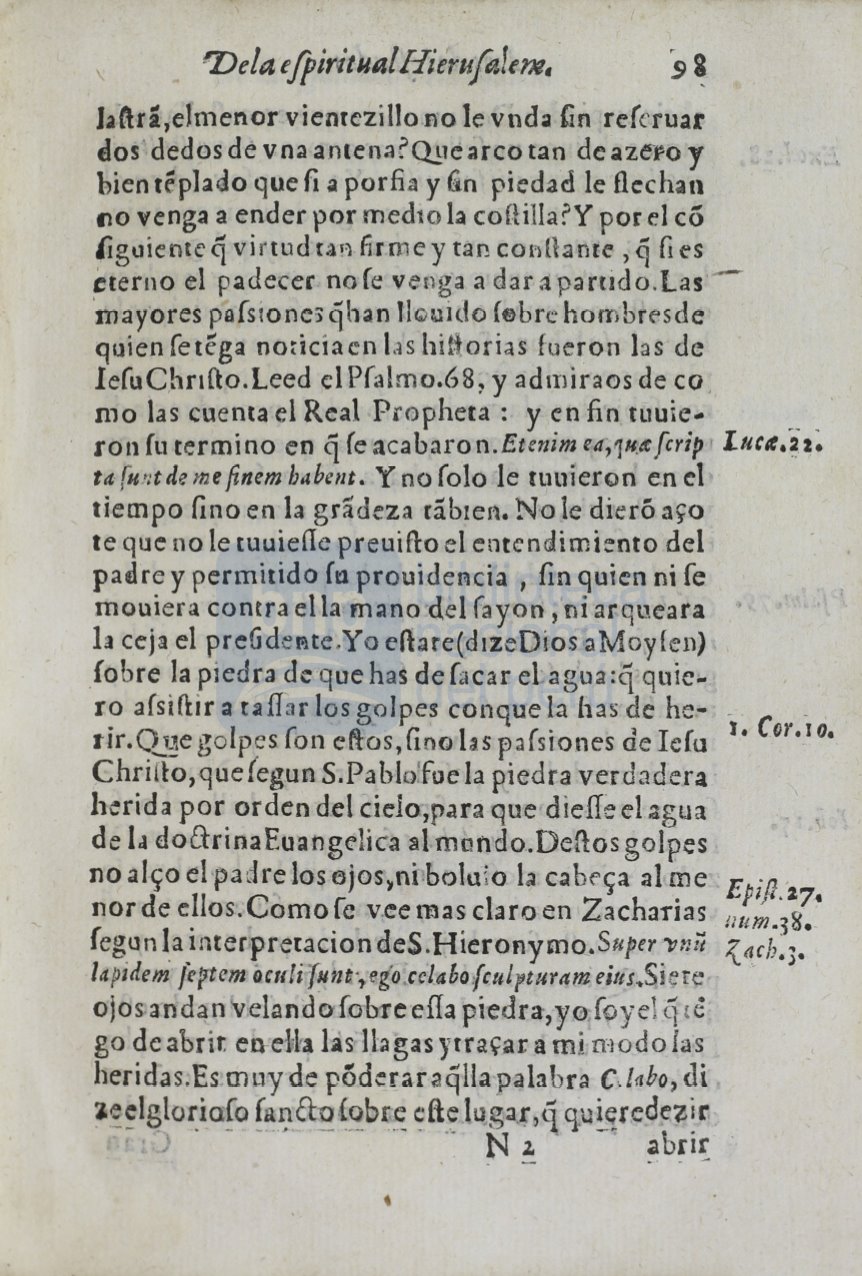 De la eſpiritual Hieruſalem. 98
laſtrā, el menor vientezillo no le vnda ſin reſeruar
dos dedos de vna antena? Que arco tan de azero y
bien tēplado que ſi a porfia y ſin piedad le flechan
no venga a ender por medio la coſtilla? Y por el cō
ſiguiente q̄ virtud tan firme y tan conſtante, q̄ ſi es
eterno el padecer no ſe venga a dar a partido. Las
mayores paſsiones q̄ han llouido ſobre hombres de
quien ſe tēga noticia en las hiſtorias fueron las de
Ieſu Chriſto. Leed el Pſalmo. 68, y admiraos de co
mo las cuenta el Real Propheta: y en fin tuuie-
ron ſu termino en q̄ ſe acabaron. Etenim ea, quæ ſcrip
Lucæ. 22.
ta ſunt de me finem habent. Y no ſolo le tuuieron en el
tiempo ſino en la grādeza tābien. No le dierō aço
te que no le tuuieſſe preuiſto el entendimiento del
padre y permitido ſu prouidencia, ſin quien ni ſe
mouiera contra el la mano del ſayon, ni arqueara
la ceja el preſidente. Yo eſtare (dize Dios a Moyſen)
ſobre la piedra de que has de ſacar el agua: q̄ quie-
ro aſsiſtir a taſſar los golpes con que la has de he-
rir. Que golpes ſon eſtos, ſino las paſsiones de Ieſu
1. Cor. 10.
Chriſto, que ſegun S. Pablo fue la piedra verdadera
herida por orden del cielo, para que dieſſe el agua
de la doctrina Euangelica al mundo. Deſtos golpes
no alço el padre los ojos, ni boluio la cabeça al me
Epiſt. 27.
nor de ellos. Como ſe vee mas claro en Zacharias
num. 38.
ſegun la interpretacion de S. Hieronymo. Super vnū
Zach. 3.
lapidem ſeptem oculi ſunt, ego celabo ſculpturam eius. Siete
ojos andan velando ſobre eſſa piedra, yo ſoy el q̄ tē
go de abrir en ella las llagas y traçar a mi modo las
heridas. Es muy de pōderar aq̄lla palabra Celabo, di
ze el glorioſo ſancto ſobre eſte lugar, q̄ quiere dezir
N 2 abrir